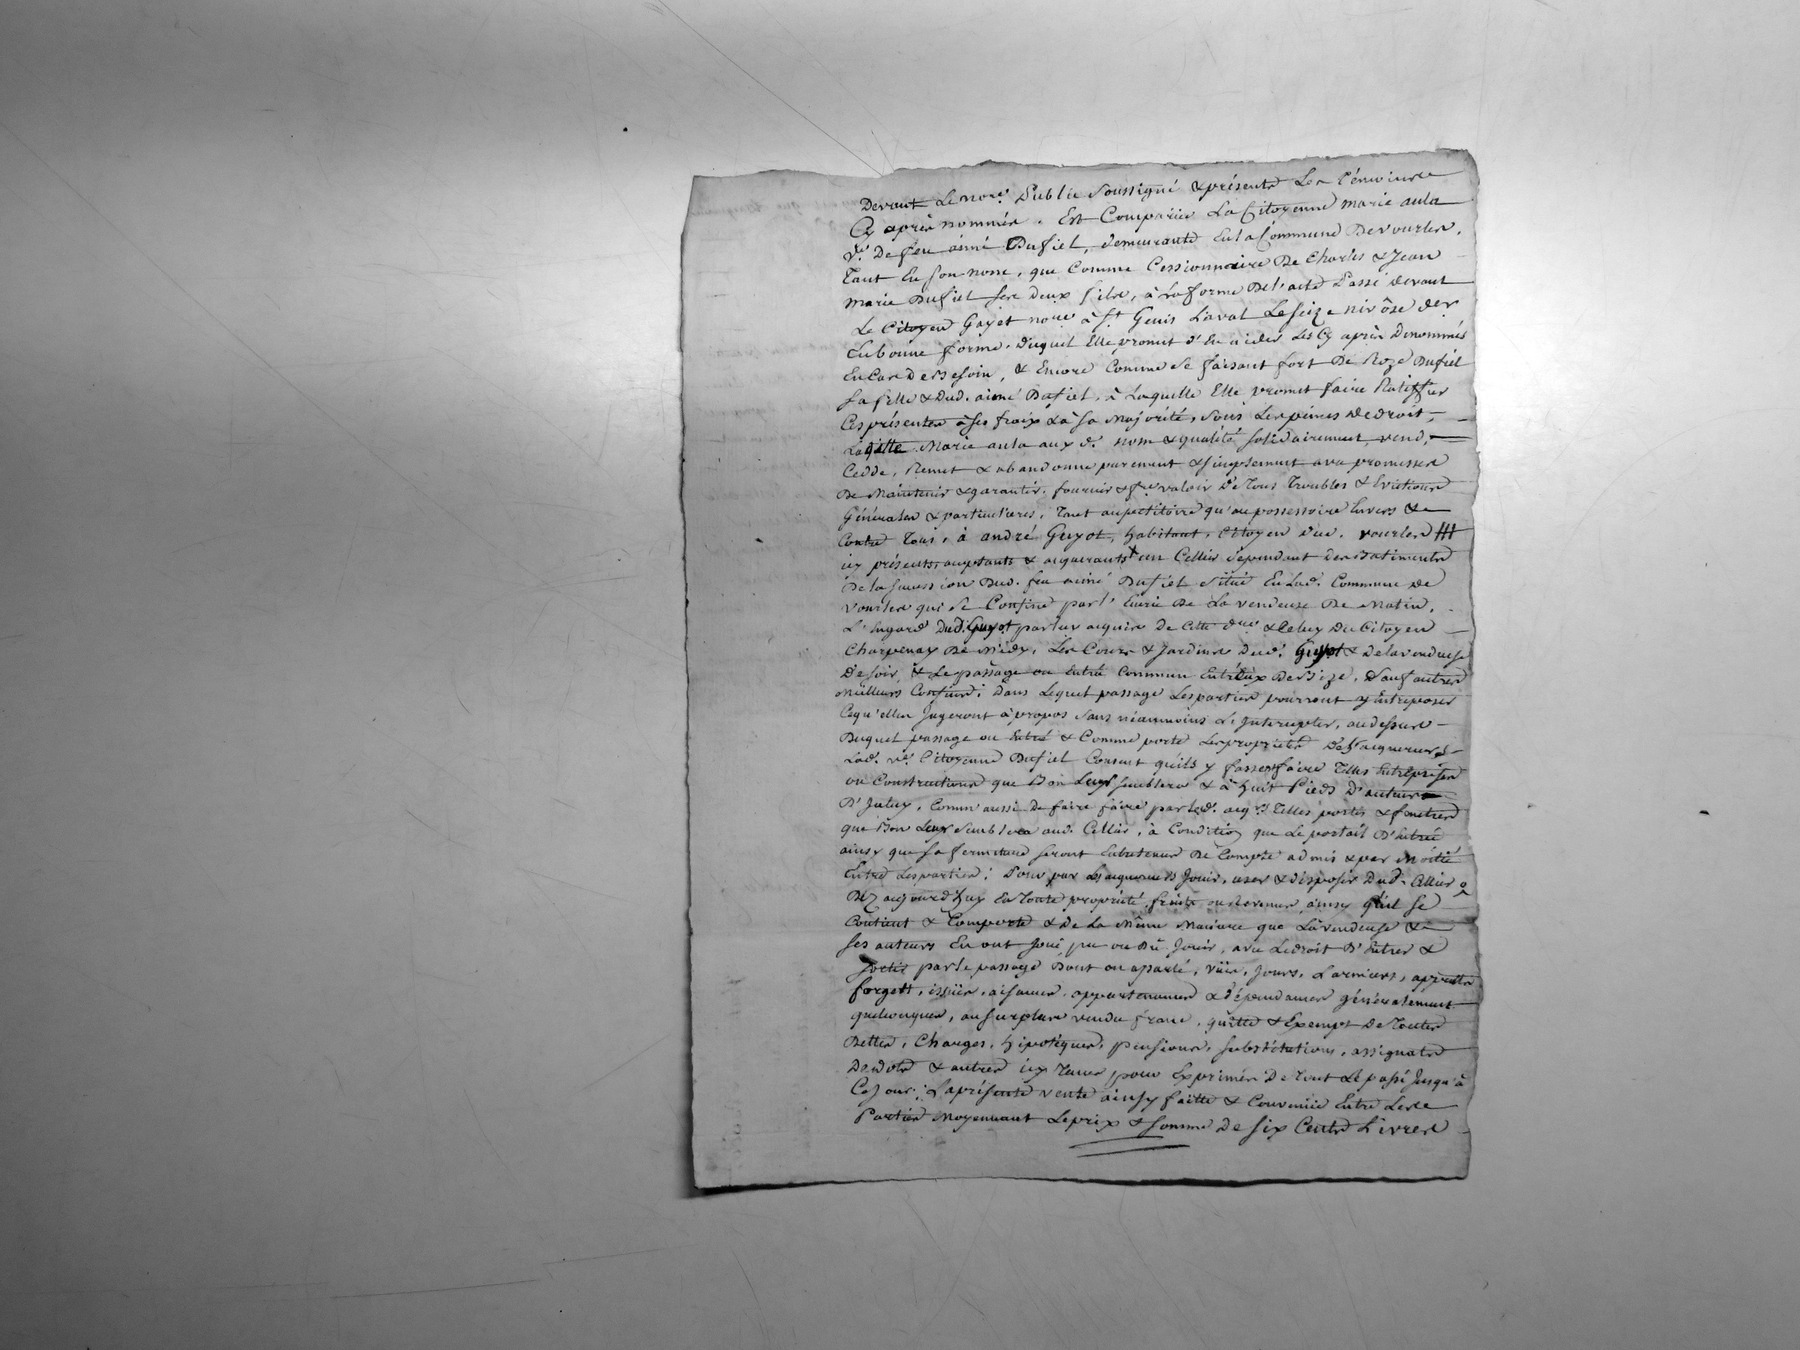 Devant Le no.re Public Soussigné & présents Les Témoins
Cy après nommés. Est Comparüe La Citoyenne marie aula
v.e De feu aimé Dufiel, demeurante En la Commune De vourles,
Tant En son nom, que Comme Cessionnaire De Charles & Jean
marie Dufiel ses Deux fils, à la forme De l'acte Passé devant
Le Citoyen Gayet no.re à S.t Genis Laval Le seize nivôse der
En bonne forme. Duquel Elle promet d'En aider Les Cy après Denommés
En Cas De Besoin, & Encore Comme se faisant fort De Roze Dufiel
sa fille & Dud. aimé Dufiel, à Laquelle Elle promet faire Ratiffier
Ces présentes à ses fraix & à sa Majorité, sous Les peines De droit,
Laquelle Marie aula aux d. nom & qualité solidairement, vend,
Cedde, Remet & abandonne purement & simplement avec promesses
De Maintenir & garantir, fournir & f.re valoir De Tous Troubles & Evictions
Générales & particulieres, Tant au petitoire qu'au possessoire Envers &
Contre Tous, à andré Guyot, habitant, Citoyen dud. vourles
icy présents, acceptants & acquerants un Cellier dépendant des Batiments
De la succession Dud. feu aimé Dufiel situé En Lad. Commune de
vourles qui se Confine par l'Ecurie De La vendeuse De Matin,
L'hugard Dud. Guyot par lui acquis de Cette d.re & Celuy Du Citoyen
Charpenay De Midy, Les Cours & Jardins Dud. Guyot & De la vendeuse
De soir, & Le passage ou Entré Commun Entr'Eux De Bize, Sauf autres
meilleurs Confins; Dans Lequel passage Les parties pourront y Entreposer
Ce qu'elles Jugeront à propos sans néanmoins L'Interrupter, au dessus
Duquel passage ou Entré & Comme porte Les propriétés Des acquereurs,
Lad. v.e Citoyenne Dufiel Consent qu'ils y fassent faire Telles Entreprises
ou Constructions que Bon Leur semblera & à huit Pieds D'auteur
D'Iceluy, Comm' aussi De faire faire par led. acq.r Telles portes & fenetres
que Bon Leur semblera aud. Cellier, à Condition que Le portail D'Entrée
ainsy que sa fermeture seront Entretenus De Compte à demis & par moitié
Entre Les parties; Pour par Les acquereurs Jouir, user & disposer Dud. Cellier
Dez aujourd'huy En Toute propriété, fruits ou Revenus, ainsy qu'il se
Contient & Comporte & De La Même Maniere que La vendeuse &
ses auteurs En ont Joui pu ou Dû Jouir, avec Le droit D'Entrer &
sortir par le passage Dont on a parlé, vües, jours, Larmiers,
forgets, issües, aisances, appartenances & dépendances généralement
quelconques, au surplus vendu franc, quitte & Exempt De Toutes
Dettes, Charges, hipotèques, pensions, substitutions, assignats
De dots & autres icy Tenus pour Exprimés De Tout Le passé Jusqu'à
Ce Jour; La présente vente ainsy faitte & Convenüe Entre Les
Parties Moyennant Le prix & somme De six Cents Livres